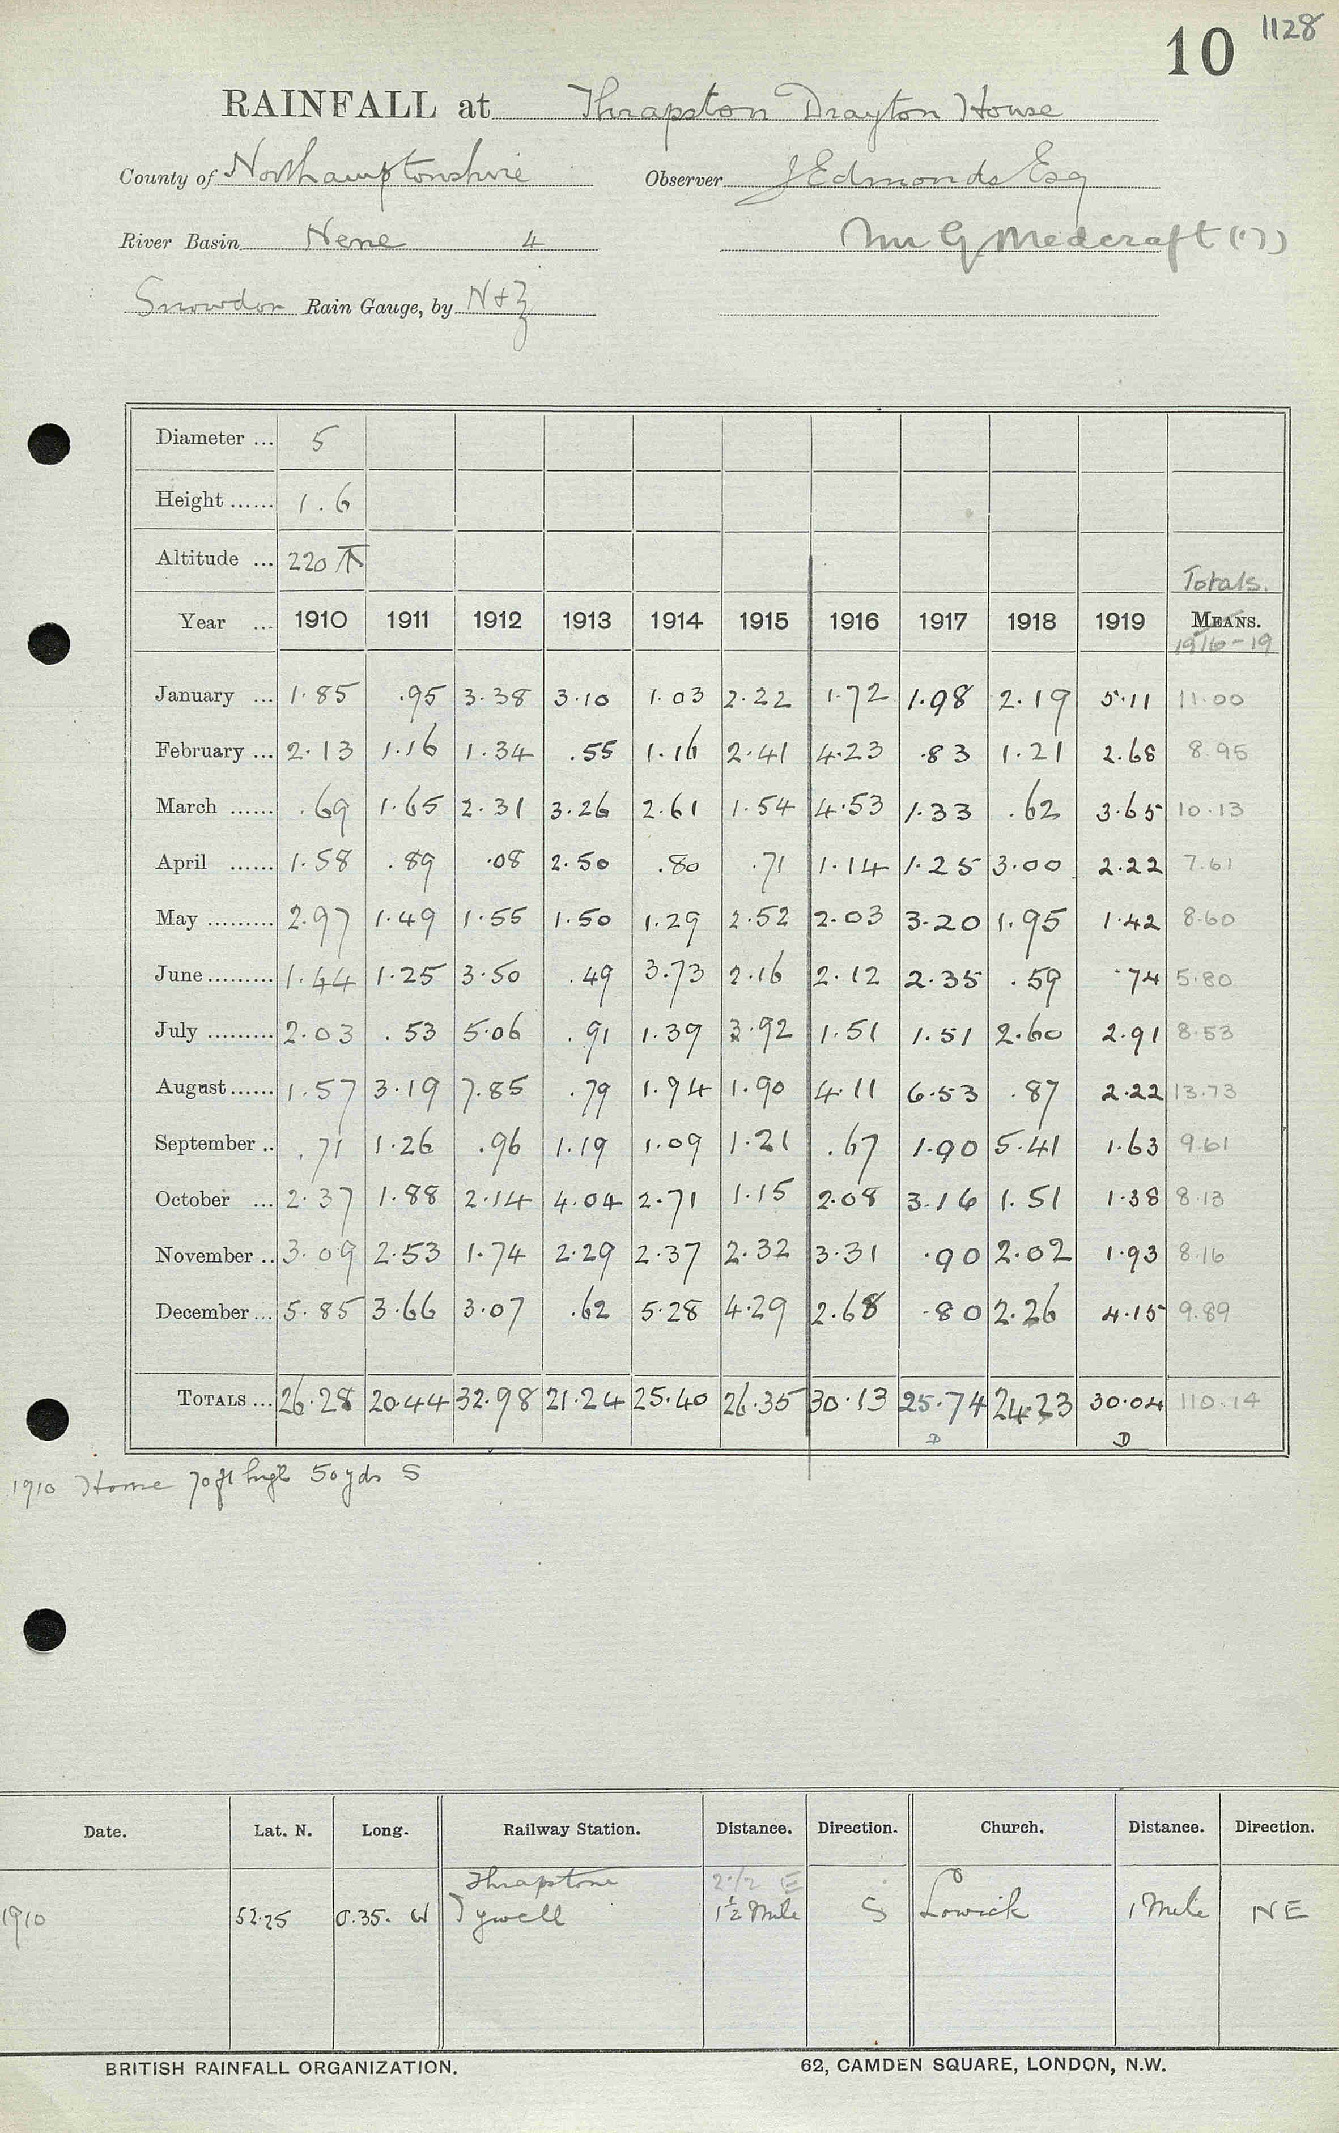 10 1128
RAINFALL at Thrapston Drayton House
County of Northamptonshire Observer J Edmonds Esq
River Basin Nene 4 Mr G Medcraft (17)
Snowdon Rain Gauge, by N+Z
Diameter ... 5
Height ...... 1.6
Altitude ... 220
Totals.
Year ... 1910 1911 1912 1913 1914 1915 1916 1917 1918 1919 MEANS.
1916-19
January ... 1.85 .95 3.38 3.10 1.03 2.22 1.72 1.98 2.19 5.11 11.00
February ... 2.13 1.16 1.34 .55 1.16 2.41 4.23 .83 1.21 2.68 8.95
March ...... .69 1.65 2.31 3.26 2.61 1.54 4.53 1.33 .62 3.65 10.13
April ...... 1.58 .89 .08 2.50 .80 .71 1.14 1.25 3.00 2.22 7.61
May ......... 2.97 1.49 1.55 1.50 1.29 2.52 2.03 3.20 1.95 1.42 8.60
June ......... 1.44 1.25 3.50 .49 3.73 2.16 2.12 2.35 .59 .74 5.80
July ......... 2.03 .53 5.06 .91 1.39 3.92 1.51 1.51 2.60 2.91 8.53
August ...... 1.57 3.19 7.85 .79 1.94 1.90 4.11 6.53 .87 2.22 13.73
September .. .71 1.26 .96 1.19 1.09 1.21 .67 1.90 5.41 1.63 9.61
October ... 2.37 1.88 2.14 4.04 2.71 1.15 2.08 3.16 1.51 1.38 8.13
November .. 3.09 2.53 1.74 2.29 2.37 2.32 3.31 .90 2.02 1.93 8.16
December ... 5.85 3.66 3.07 .62 5.28 4.29 2.68 .80 2.26 4.15 9.89
TOTALS ... 26.28 20.44 32.98 21.24 25.40 26.35 30.13 25.74 24.23 30.04 110.14
D D
1910 House 70 ft high 50 yds S
Date. Lat. N. Long. Railway Station. Distance. Direction. Church. Distance. Direction.
Thrapstone 2 1/2 E
1910 52.25 0.35. W Twywell 1½ Mile S Lowick 1 Mile NE
BRITISH RAINFALL ORGANIZATION. 62, CAMDEN SQUARE, LONDON, N.W.